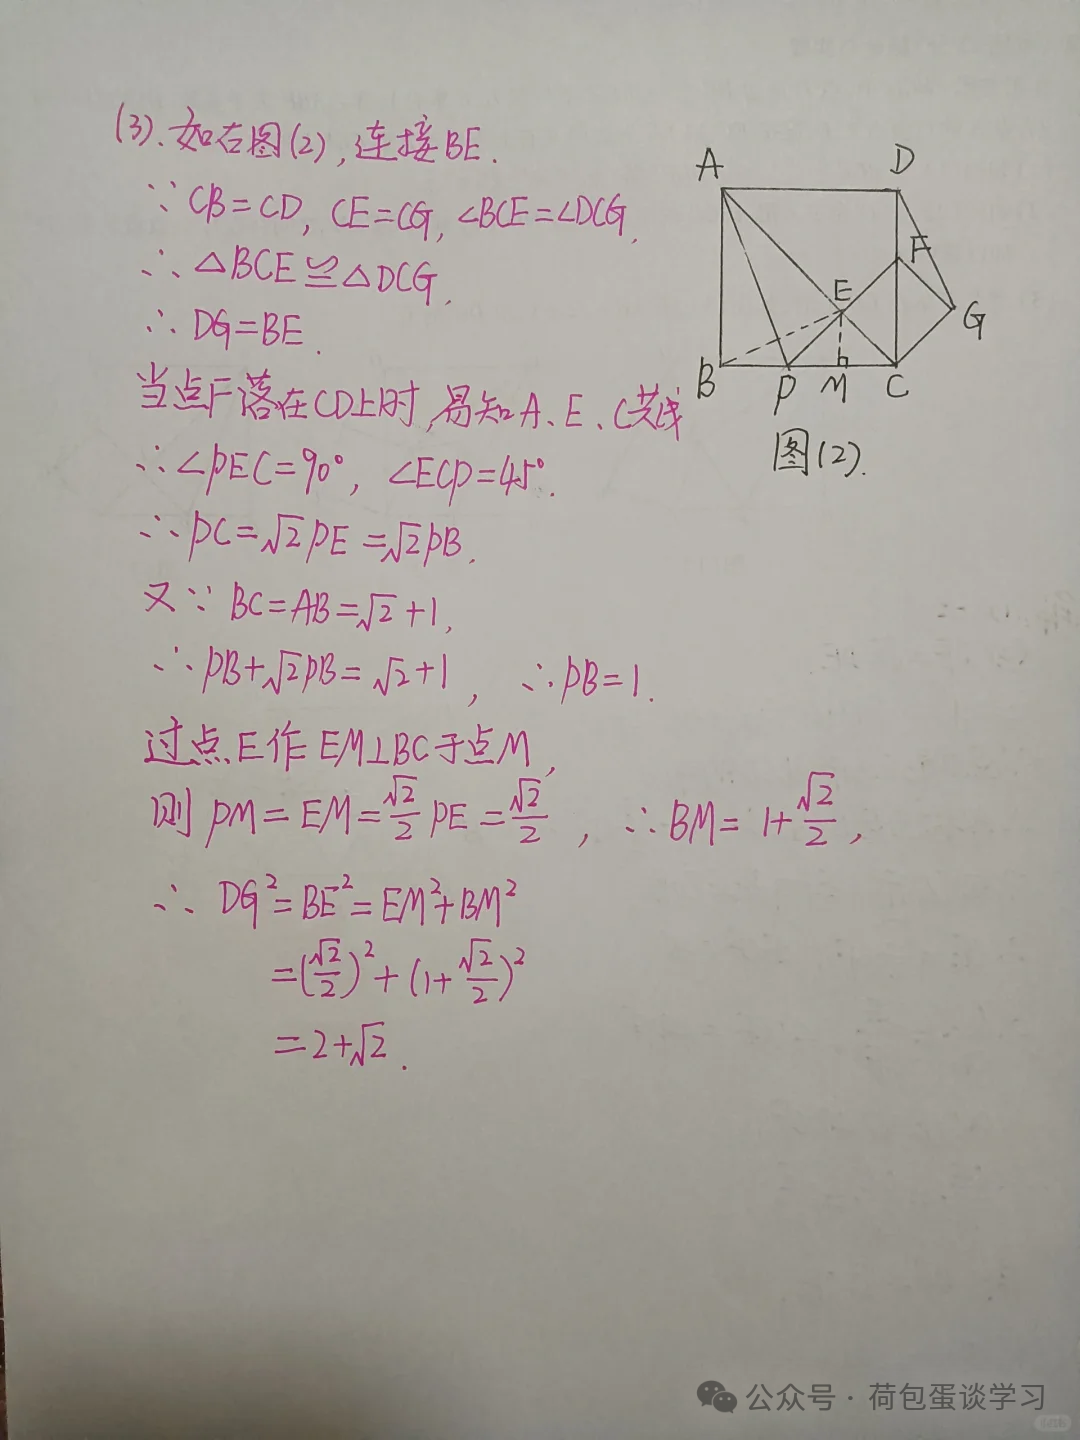 (3).如右图(2),连接BE.
∵CB=CD, CE=CG, ∠BCE=∠DCG,
∴△BCE≌△DCG,
∴DG=BE.
当点F落在CD上时,易知A、E、C共线
∴∠PEC=90°, ∠ECP=45°.
∴PC=√2PE=√2PB.
又∵BC=AB=√2+1,
∴PB+√2PB=√2+1, ∴PB=1.
过点E作EM⊥BC于点M,
则PM=EM=√2/2PE=√2/2, ∴BM=1+√2/2,
∴DG²=BE²=EM²+BM²
=(√2/2)²+(1+√2/2)²
=2+√2.
A
D
F
E
G
B
P
M
C
图(2).
公众号·荷包蛋谈学习